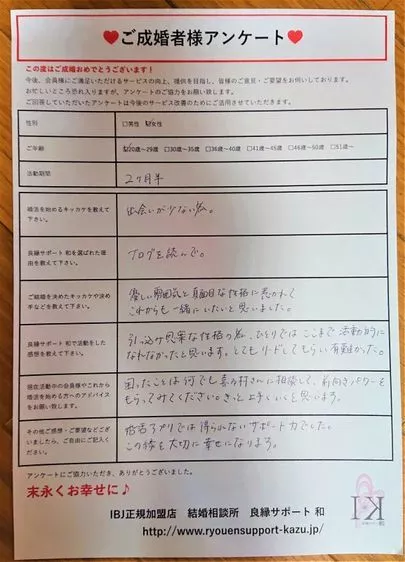 ♥ご成婚者様アンケート♥
この度はご成婚おめでとうございます！
今後、会員様にご満足いただけるサービスの向上、提供を目指し、皆様のご意見・ご要望をお伺いしております。
お忙しいところ恐れ入りますが、アンケートのご協力をお願い致します。
ご回答していただいたアンケートは今後のサービス改善のためにご活用させていただきます。
性別
□男性 ☑女性
ご年齢
☑20歳～29歳 □30歳～35歳 □36歳～40歳 □41歳～45歳 □46歳～50歳 □51歳～
活動期間
2ヶ月半
婚活を始めるキッカケを教えて
下さい。
出会いが少ない為。
良縁サポート 和を選ばれた理
由を教えて下さい。
ブログを読んで。
ご結婚を決めたキッカケや決め
手などを教えて下さい。
優しい雰囲気と真面目な性格に惹かれて
これからも一緒にいたいと思いました。
良縁サポート 和で活動をした
感想を教えて下さい。
引っ込み思案な性格の為、ひとりではここまで活動的に
なれなかったと思います。とてもリードしてもらい有難かった。
現在活動中の会員様やこれから
婚活を始める方へのアドバイス
をお願い致します。
困ったことは何でも喜多村さんに相談して、前向きパワーを
もらってみてください。きっと上手くいくと思います。
その他ご感想・ご要望などござ
いましたら、ご自由にご記入く
ださい。
アプリでは得られないサポート力でした。
この縁を大切に幸せになります。
アンケートにご協力いただき、ありがとうございました。
末永くお幸せに♪
IBJ正規加盟店 結婚相談所 良縁サポート 和
http://www.ryouensupport-kazu.jp/